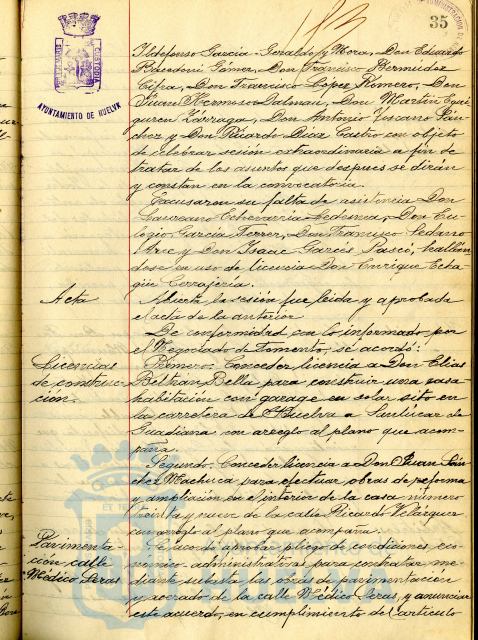 35
AYUNTAMIENTO DE HUELVA
Ildefonso García-Geraldo y Mora, Don Eduardo
Gómez, Don Francisco Bermúdez
Cifra, Don Francisco López Romero, Don
Juan Hermoso Dalmau, Don Martín
Zárraga, Don Antonio Viscano Sán-
chez y Don Ricardo Díaz Castro con objeto
de celebrar sesión extraordinaria a fin de
tratar de los asuntos que despues se dirán
y constan en la convocatoria.
Excusaron su falta de asistencia Don
Laureano Echevarria Ledesma, Don Eu-
logio García Ferrer, Don Francisco Sedano
Arce y Don Isaac Garcés Pascó, hallán
dose en uso de licencia Don Enrique Echa-
güe Cerrajería.
Acta
Abierta la sesión fue leida y aprobada
el acta de la anterior
De conformidad con lo informado por
el Negociado de Fomento, se acordó:
Licencias
de construc-
ción.
Primero: Conceder licencia a Don Elías
Beltrán Bella para construir una casa
habitación con garage en solar sito en
la carretera de Huelva a Sanlúcar de
Guadiana con arreglo al plano que acom-
paña.
Segundo: Conceder licencia a Don Juan Sán-
chez Machuca para efectuar obras de reforma
y ampliación en el interior de la casa número
treinta y nueve de la calle Ricardo Velázquez
con arreglo al plano que acompaña.
Pavimenta-
ción calle
Médico Seras
Se acordó aprobar pliego de condiciones eco
nómico-administrativas para contratar me
diante subasta las obras de pavimentación
y acerado de la calle Médico Seras, y anunciar
este acuerdo, en cumplimiento del artículo